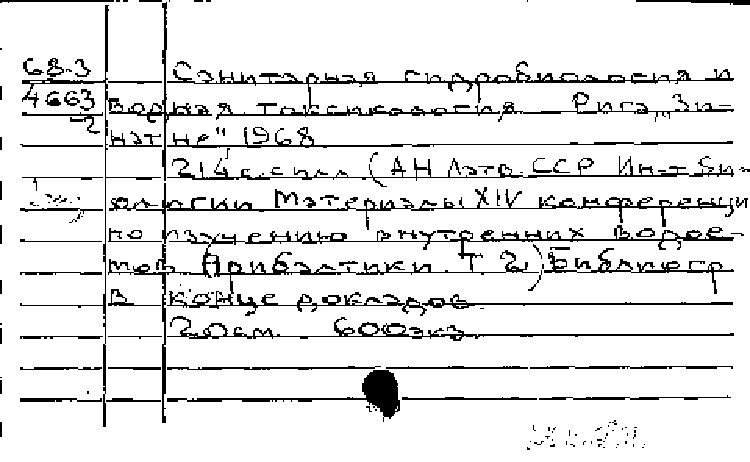 68-3 Санитарная гидробиология и
4663 водная токсикология Рига, „Зи-
2 натне", 1968
214 с. с илл. (АН Латв. ССР Ин-т би-
ологии Материалы XIV конференци
по изучению внутренних водое-
мов Прибалтики. Т. 2) Библиогр
в конце докладов
20 см. 600 экз.